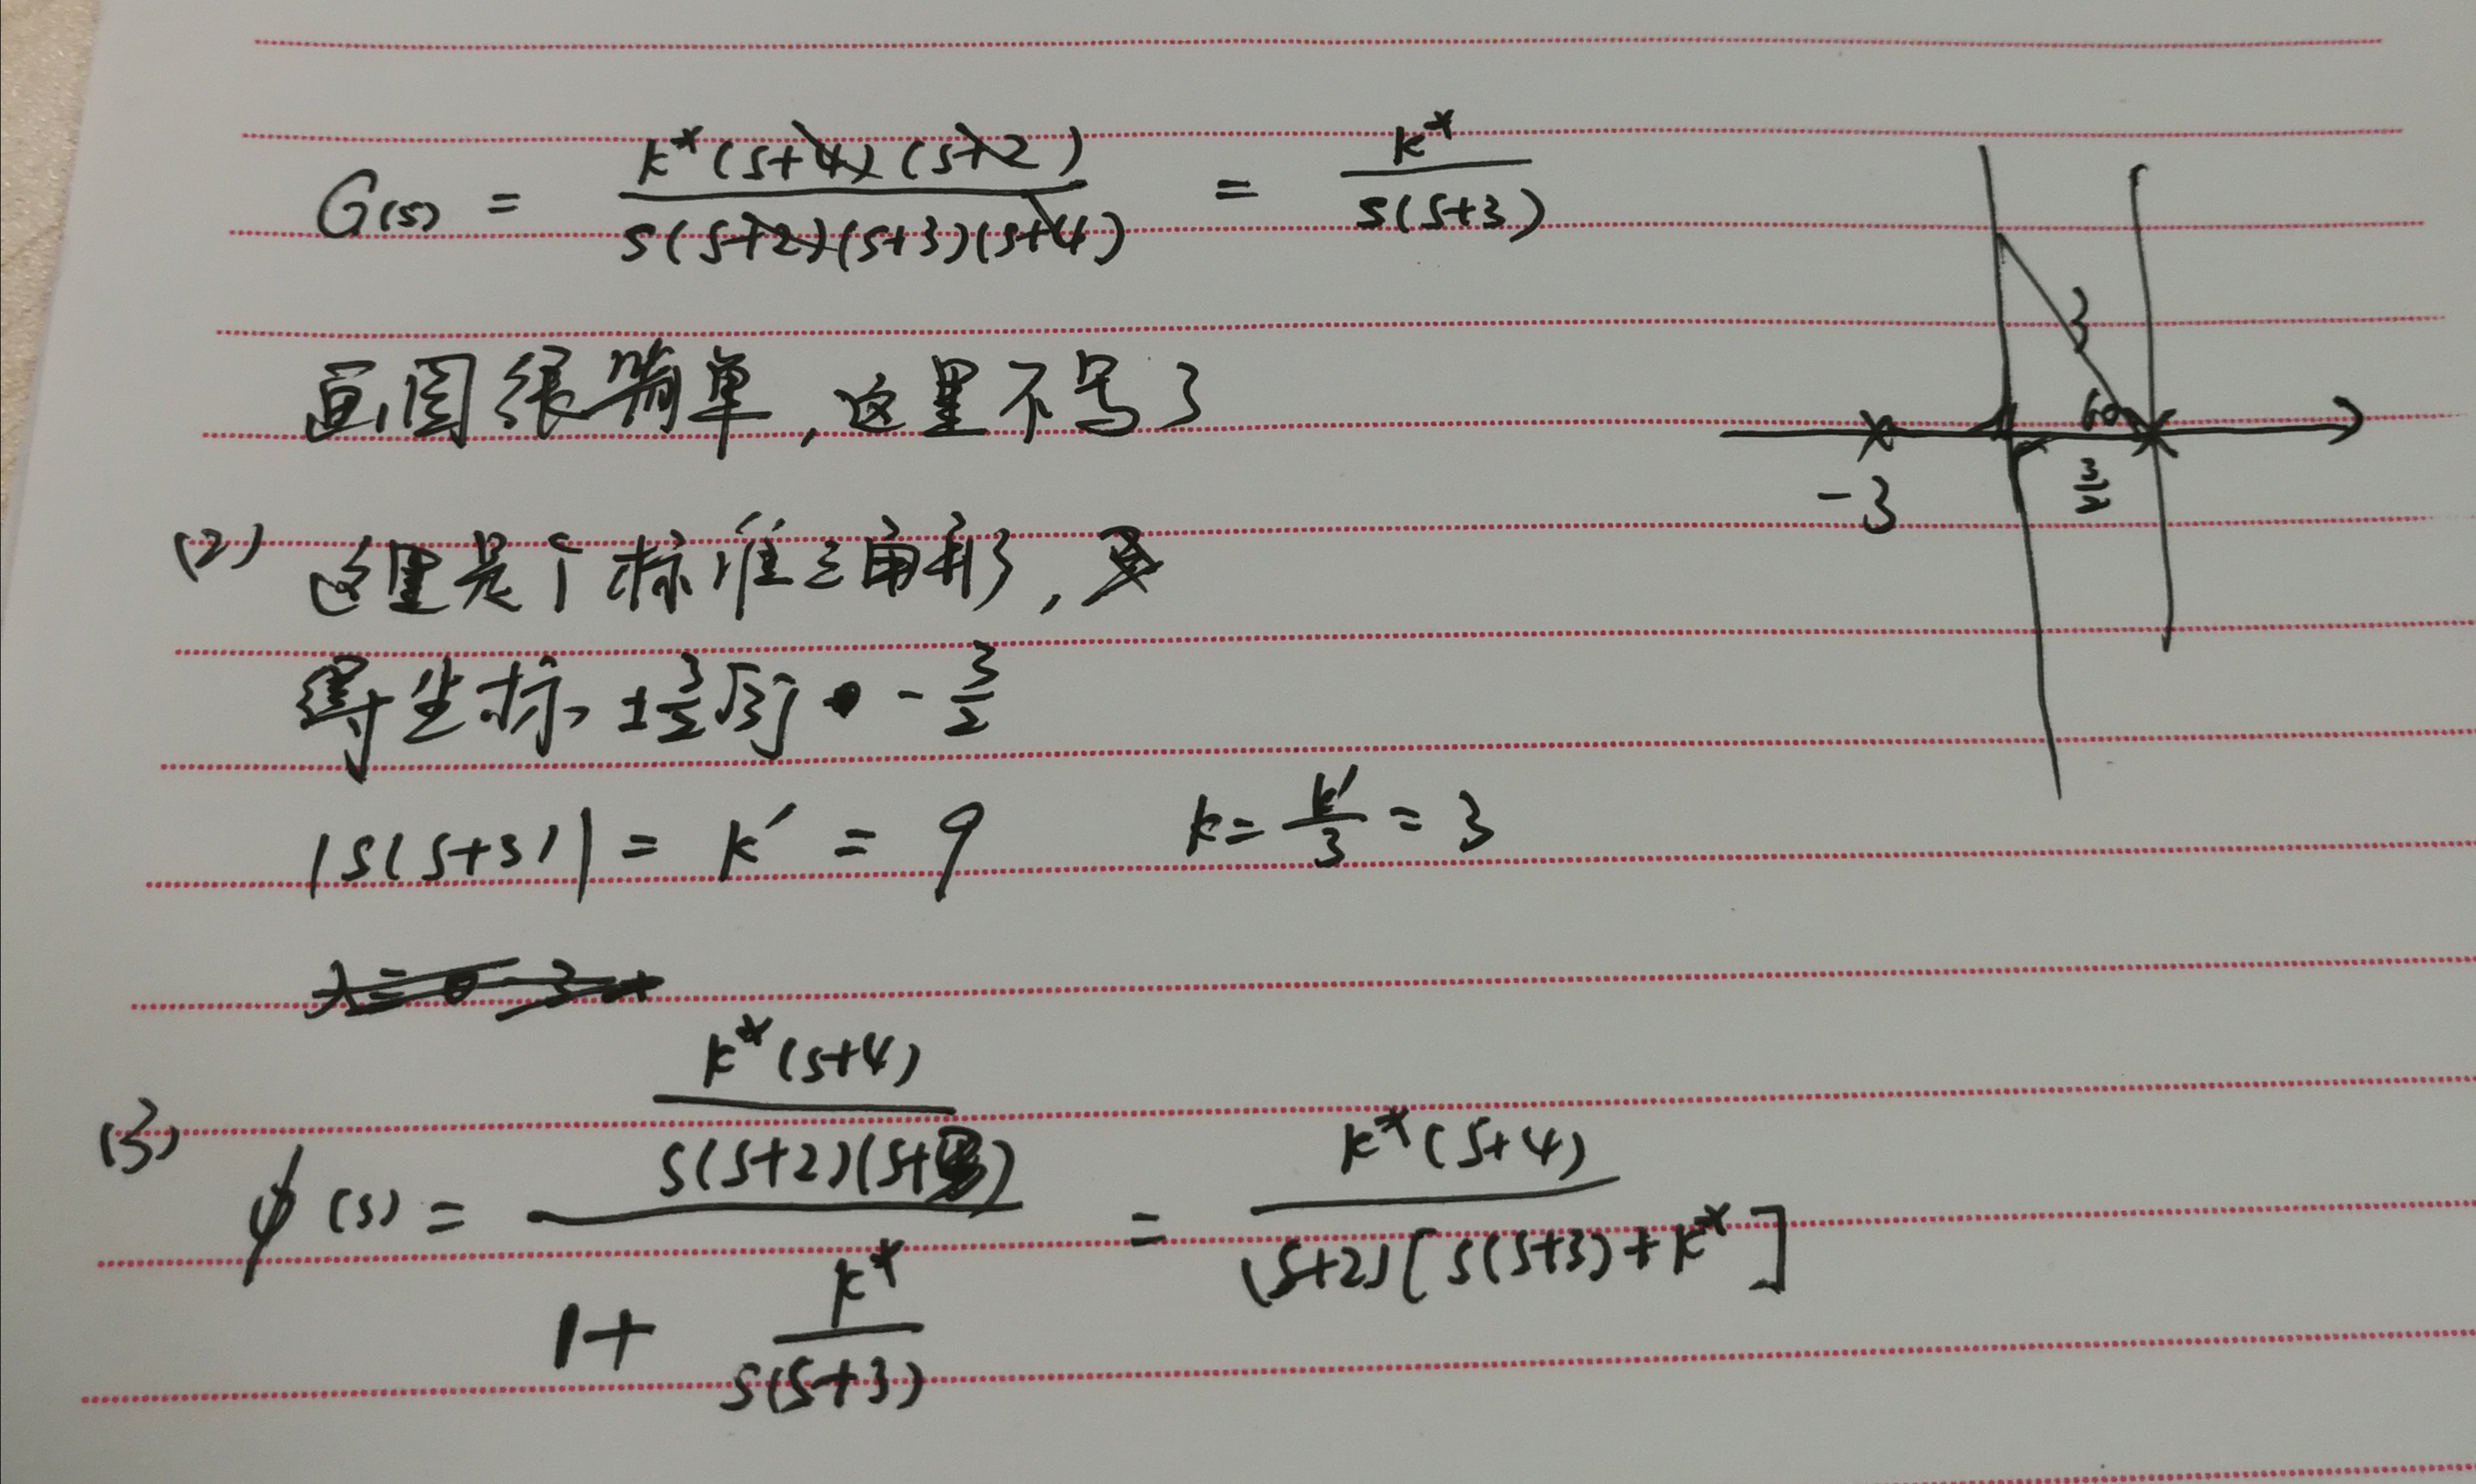 G(s) = k*(s+4)(s+2) / s(s+2)(s+3)(s+4) = k* / s(s+3)
画图很简单,这里不写了
-3 3/2 60 3
(2) 这里是个标准三角形,
得坐标 ±3/2√3j -3/2
|s(s+3)| = k' = 9 k = k'/3 = 3
(3) φ(s) = k*(s+4) / s(s+2)(s+3) / 1+ k* / s(s+3) = k*(s+4) / (s+2)[s(s+3)+k*]